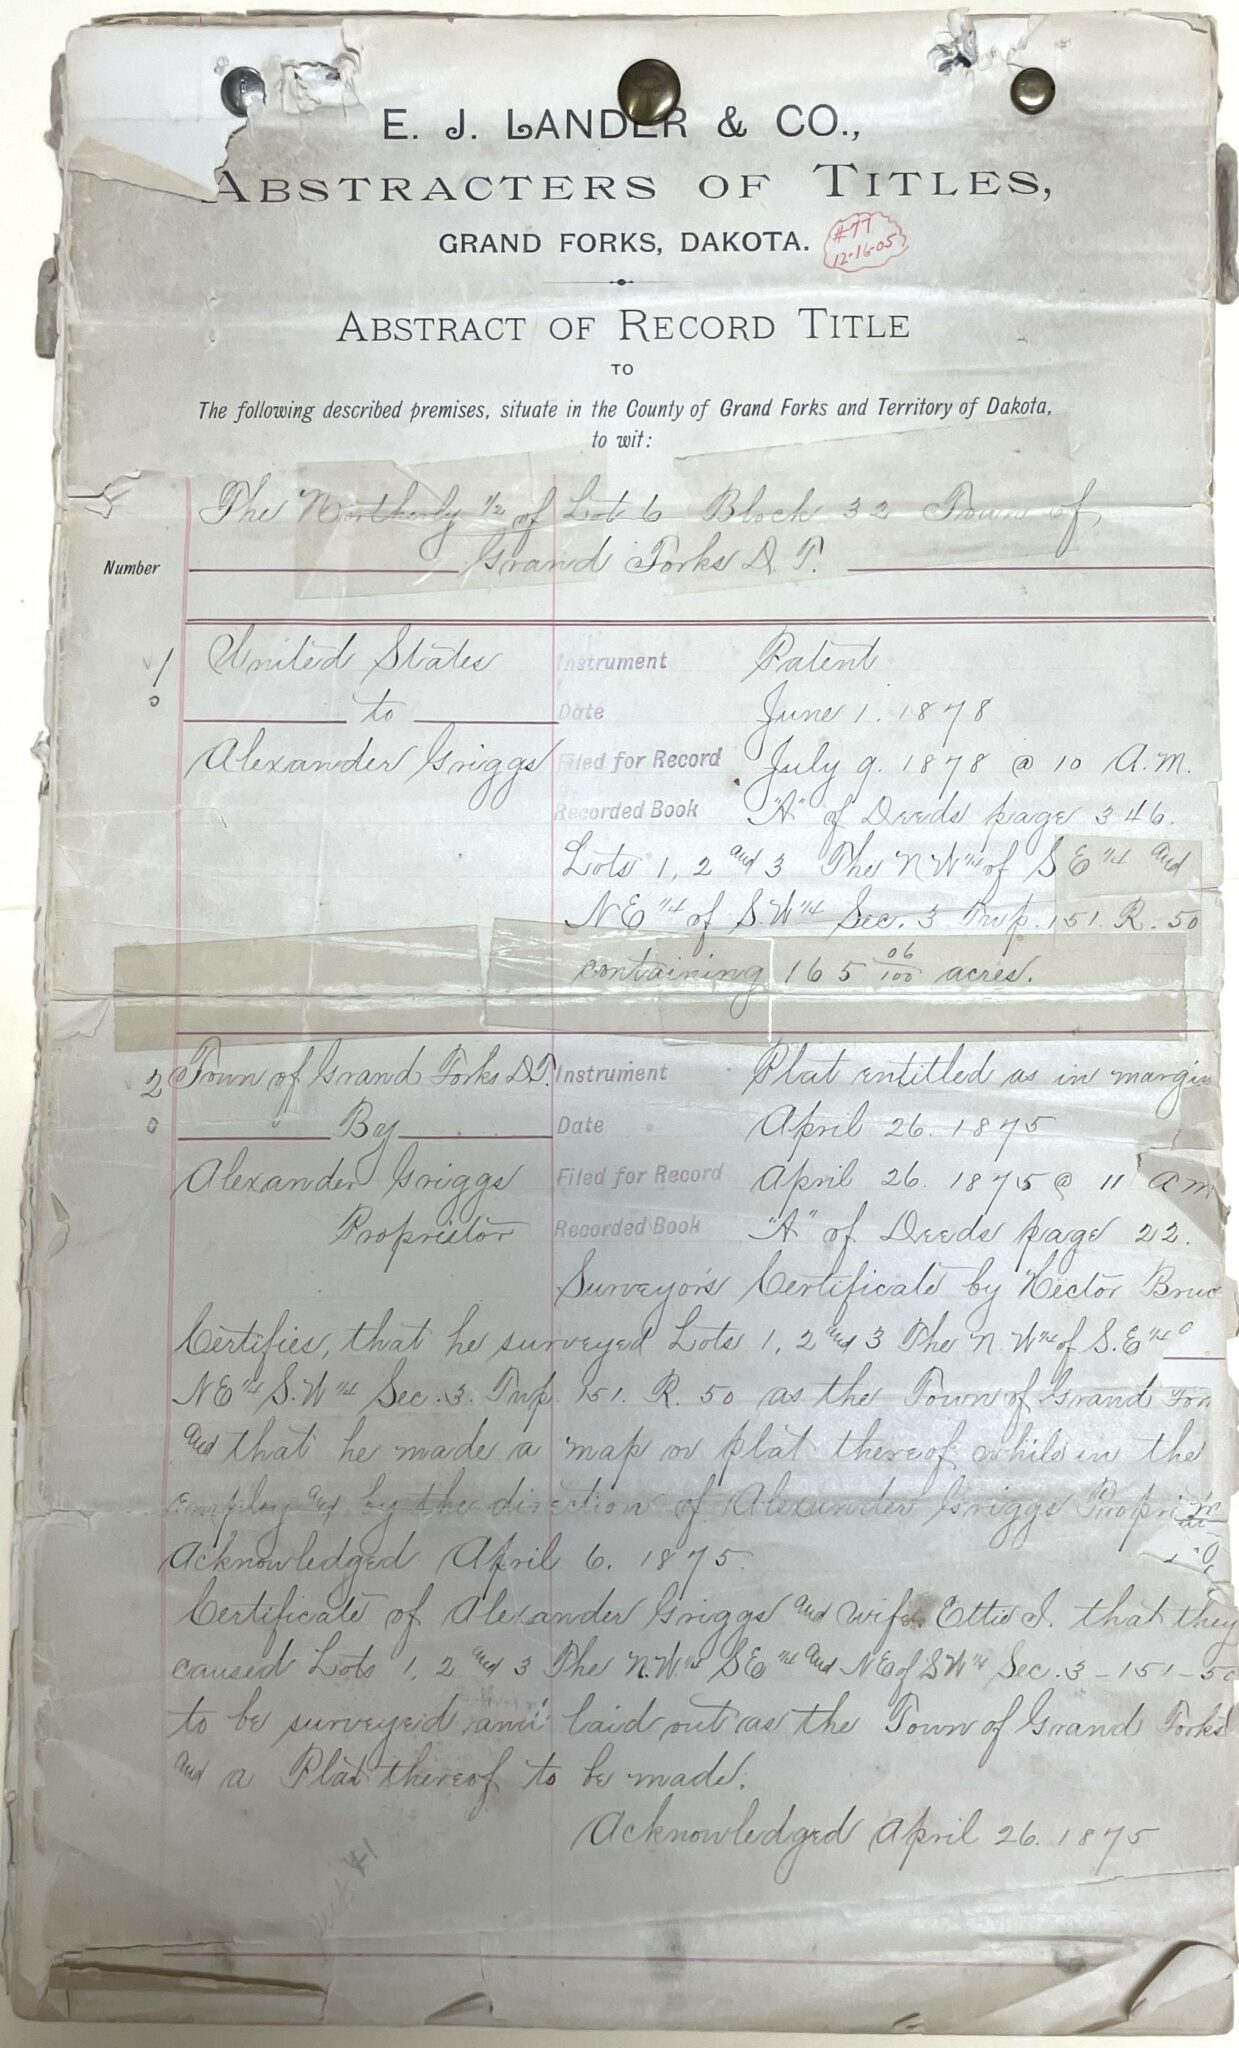 E. J. LANDER & CO.,
ABSTRACTERS OF TITLES,
GRAND FORKS, DAKOTA.
#77
12-16-05
ABSTRACT OF RECORD TITLE
TO
The following described premises, situate in the County of Grand Forks and Territory of Dakota,
to wit:
The Northerly 1/2 of Lot 6 Block 32 Town of
Number
Grand Forks D. T.
1 United States Instrument Patent
to Date June 1. 1878
Alexander Griggs Filed for Record July 9. 1878 @ 10 A.M.
Recorded Book "A" of Deeds page 346.
Lots 1, 2 and 3 The N W 1/4 of S E 1/4 and
NE 1/4 of S.W 1/4 Sec. 3 Twp. 151. R. 50
containing 165 06/100 acres.
2 Town of Grand Forks D.T. Instrument Plat entitled as in margin
By Date April 26. 1875
Alexander Griggs Filed for Record April 26. 1875 @ 11 AM
Proprietor Recorded Book "A" of Deeds page 22.
Surveyor's Certificate by Hector Bruce
Certifies, that he surveyed Lots 1, 2 and 3 The N. W 1/4 of S. E 1/4
NE 1/4 S. W 1/4 Sec. 3. Twp. 151. R. 50 as the Town of Grand For
and that he made a map or plat thereof while in the
employ and by the direction of Alexander Griggs
Acknowledged April 6. 1875
Certificate of Alexander Griggs and wife Ettie I. that they
caused Lots 1, 2 and 3 The N. W. 1/4 S E 1/4 and NE of S W 1/4 Sec. 3 - 151 - 50
to be surveyed and laid out as the Town of Grand Forks
and a Plat thereof to be made.
Acknowledged April 26. 1875